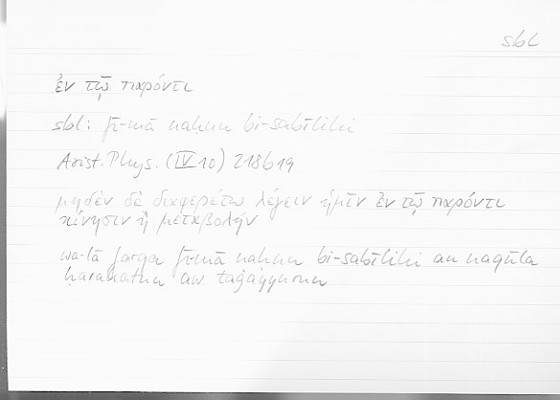 sbl
ἐν τῷ παρόντι
sbl: fī-mā naḥnu bi-sabīlihi
Arist. Phys. (IV 10) 218b19
μηδὲν δὲ διαφερέτω λέγειν ἡμῖν ἐν τῷ παρόντι
κίνησιν ἢ μεταβολήν
wa-lā farqa fī-mā naḥnu bi-sabīlihi an naqūla
ḥarakatun aw taġayyurun